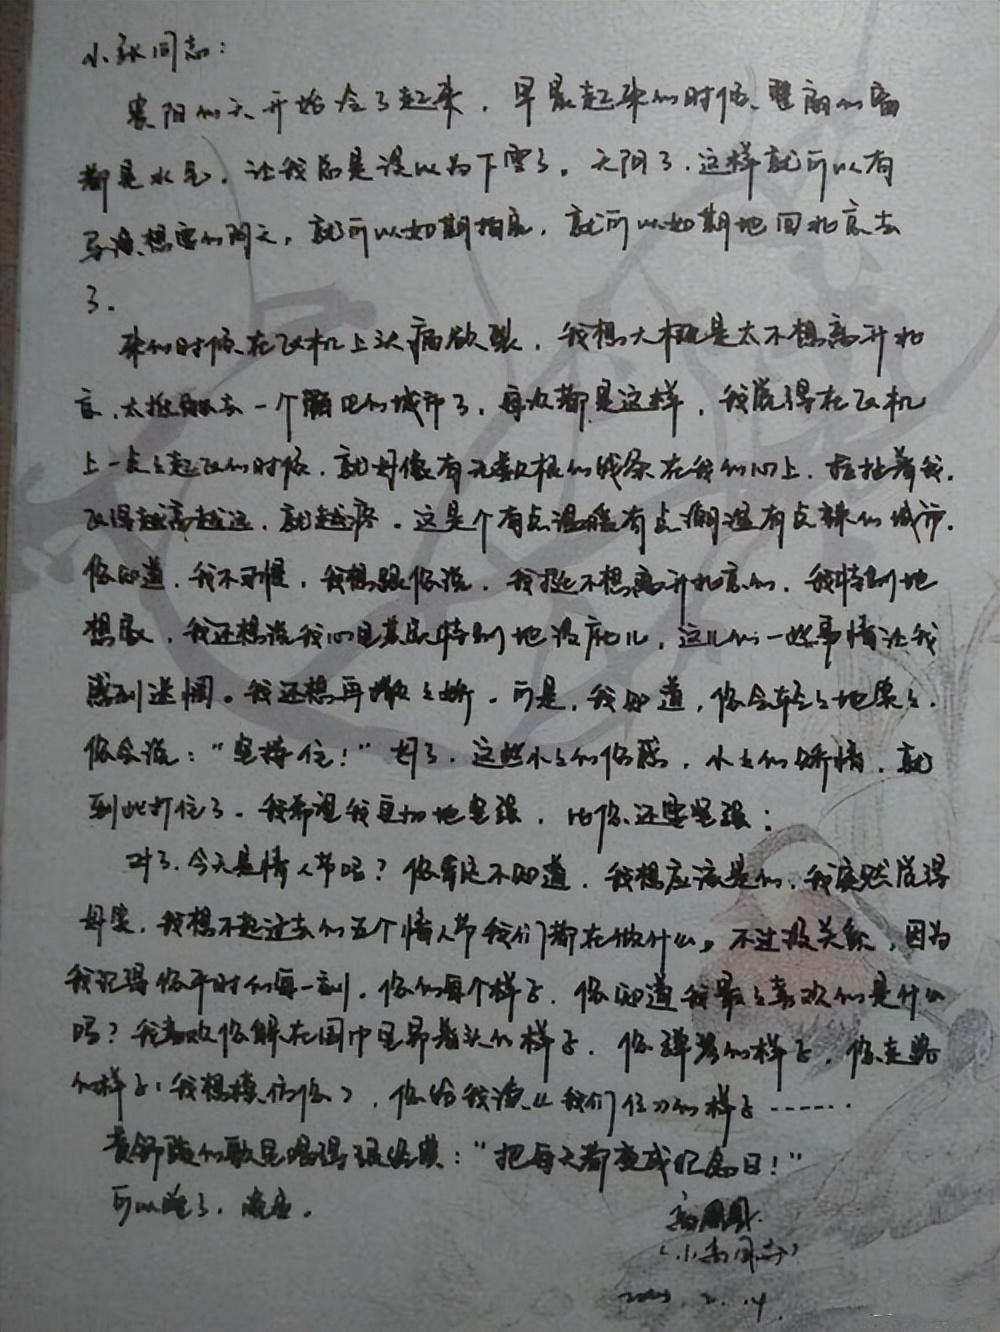 小张同志:
贵阳的天开始冷了起来,早晨起来的时候,整扇的窗
都是水气,让我总是误以为下雪了。天阴了,这样就可以有
导演想要的阴天,就可以如期拍完,就可以如期地回北京去
了。
来的时候在飞机上头痛欲裂,我想大概是太不想离开北
京,太抵触去一个陌生的城市了,每次都是这样,我觉得在飞机
上一点点起飞的时候,就好像有无数根的线条在我的心上,拉扯着我,
飞得越高越远,就越疼。这是个有点温暖有点潮湿有点辣的城市,
你知道,我不习惯,我想跟你说,我挺不想离开北京的,我特别地
想家,我还想说我心里其实特别地没底儿,这儿的一些事情让我
感到迷惘。我还想再撒撒娇。可是,我知道,你会轻轻地笑笑,
你会说:“坚持住!”好了,这些小小的伤感,小小的矫情,就
到此打住了。我希望我更加地坚强,比你还要坚强;
对了,今天是情人节吗?你肯定不知道,我想应该是的,我突然觉得
好笑,我想不起过去的五个情人节我们都在做什么。不过没关系,因为
我记得你平时的每一刻,你的每个样子,你知道我最最喜欢的是什么
吗?我喜欢你躲在围巾里昂着头的样子,你弹琴的样子,你走路
的样子(我想模仿你),你给我读《我们仨》的样子……
黄舒骏的歌里唱得很经典:“把每天都变成纪念日!”
可以睡了,晚安。
高圆圆
(小高同志)
2.14